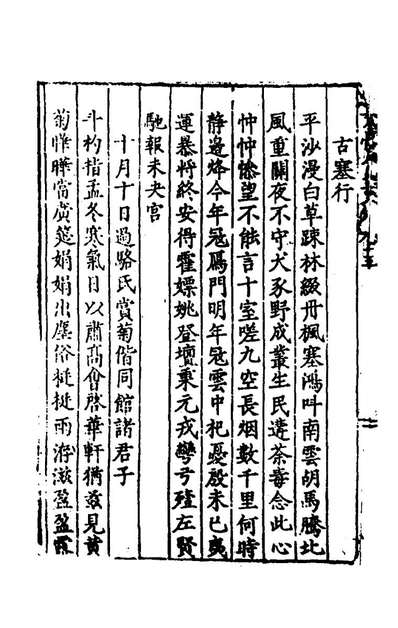 古塞行
平沙漫白草疎林綴丹楓塞鴻呌南雲胡馬騰北
風重關夜不守犬豕野成叢生民遘荼毒念此心
忡忡愴望不能言十室嗟九空長烟數千里何時
静邊烽今年冦鴈門明年冦雲中杞憂殷未已夷
運暴將終安得霍嫖姚登壇秉元戎彎弓殪左賢
馳報未央宫
十月十日過駱氏賞菊偕同館諸君子
斗杓指孟冬寒氣日以肅髙㑹啓華軒猶玆見黄
菊帷曄當廣筵娟娟出塵俗挺挺雨㳺滋盈盈露